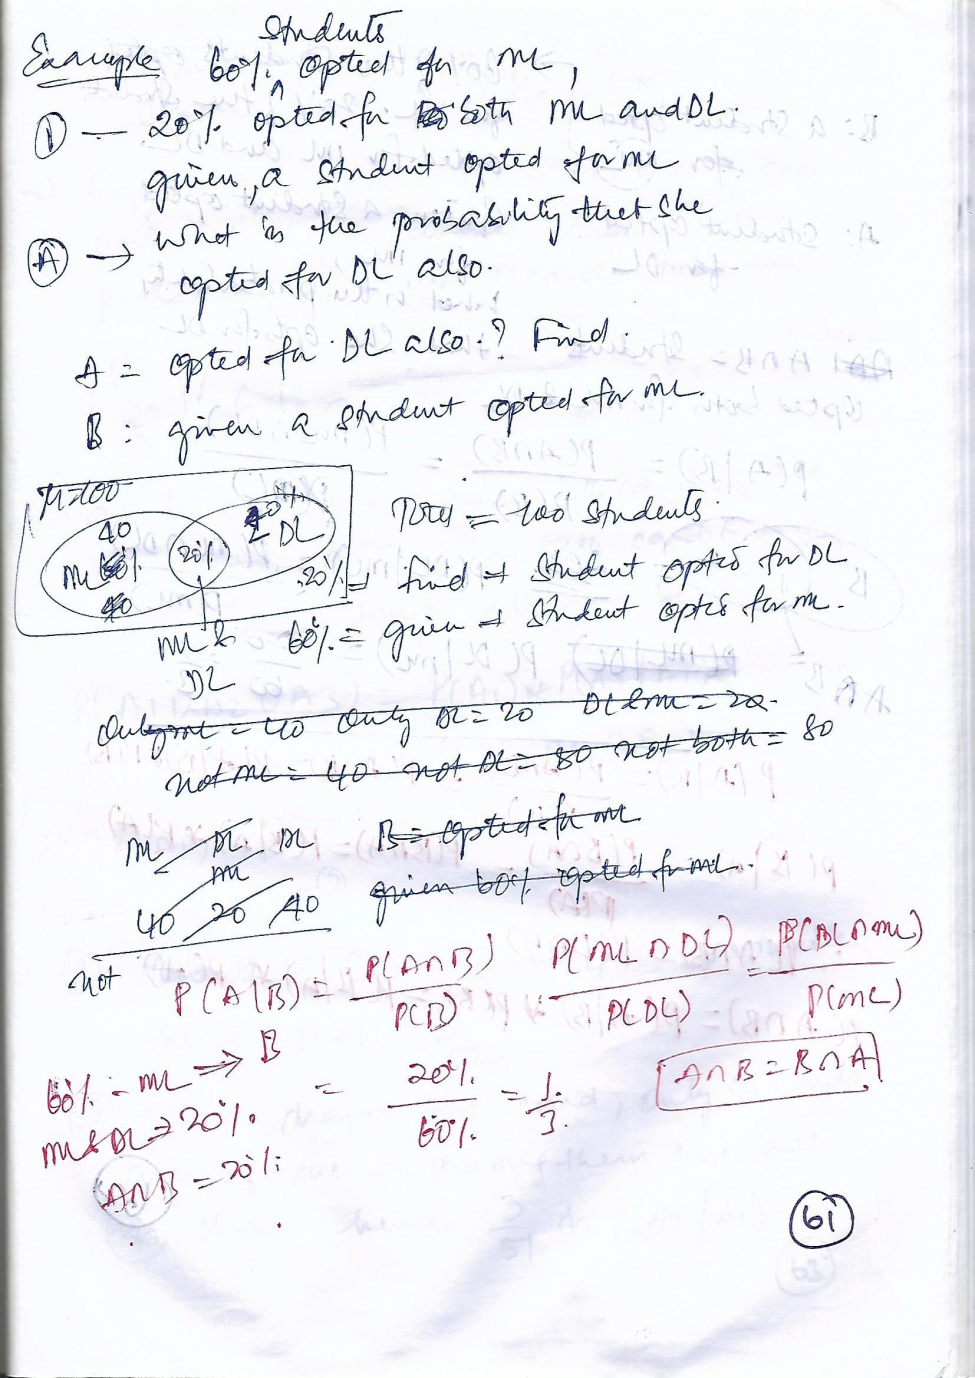 Students
Example 60% opted for ML,
① — 20% opted for both ML and DL.
given, a student opted for ML
Ⓐ → what is the probability that she
opted for DL also.
A = opted for DL also.? Find.
B : given a student opted for ML.
μ=100
40
ML 60% 20% DL
40
ML &
DL
Total = 100 students.
20% → find → student opted for DL
60% = given → student opted for ML.
Only ML = 40 Only DL = 20 DL & ML = 20.
not ML = 40 not DL = 80 not both = 80
ML DL DL
ML
40 20 40
not
B = opted for ML
given 60% opted for ML.
P(A|B) = P(A∩B) / P(B) P(ML ∩ DL) / P(DL) = P(DL∩ML) / P(ML)
60% - ML ⇒ B
ML & DL ⇒ 20%.
A∩B = 20%
= 20% / 60% = 1/3.
A∩B = B∩A
61